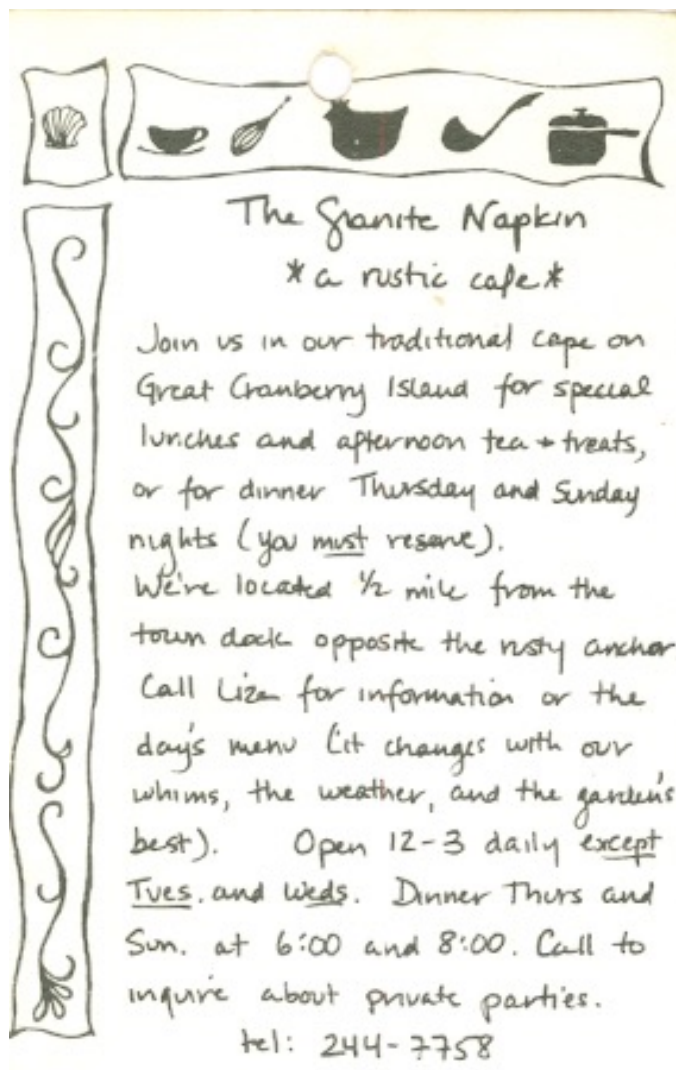 The Granite Napkin
*a rustic cafe*
Join us in our traditional cape on
Great Cranberry Island for special
lunches and afternoon tea + treats,
or for dinner Thursday and Sunday
nights (you must reserve).
We're located 1/2 mile from the
town dock opposite the rusty anchor
Call Liza for information or the
day's menu (it changes with our
whims, the weather, and the garden's
best). Open 12-3 daily except
Tues. and Weds. Dinner Thurs and
Sun. at 6:00 and 8:00. Call to
inquire about private parties.
tel: 244-7758